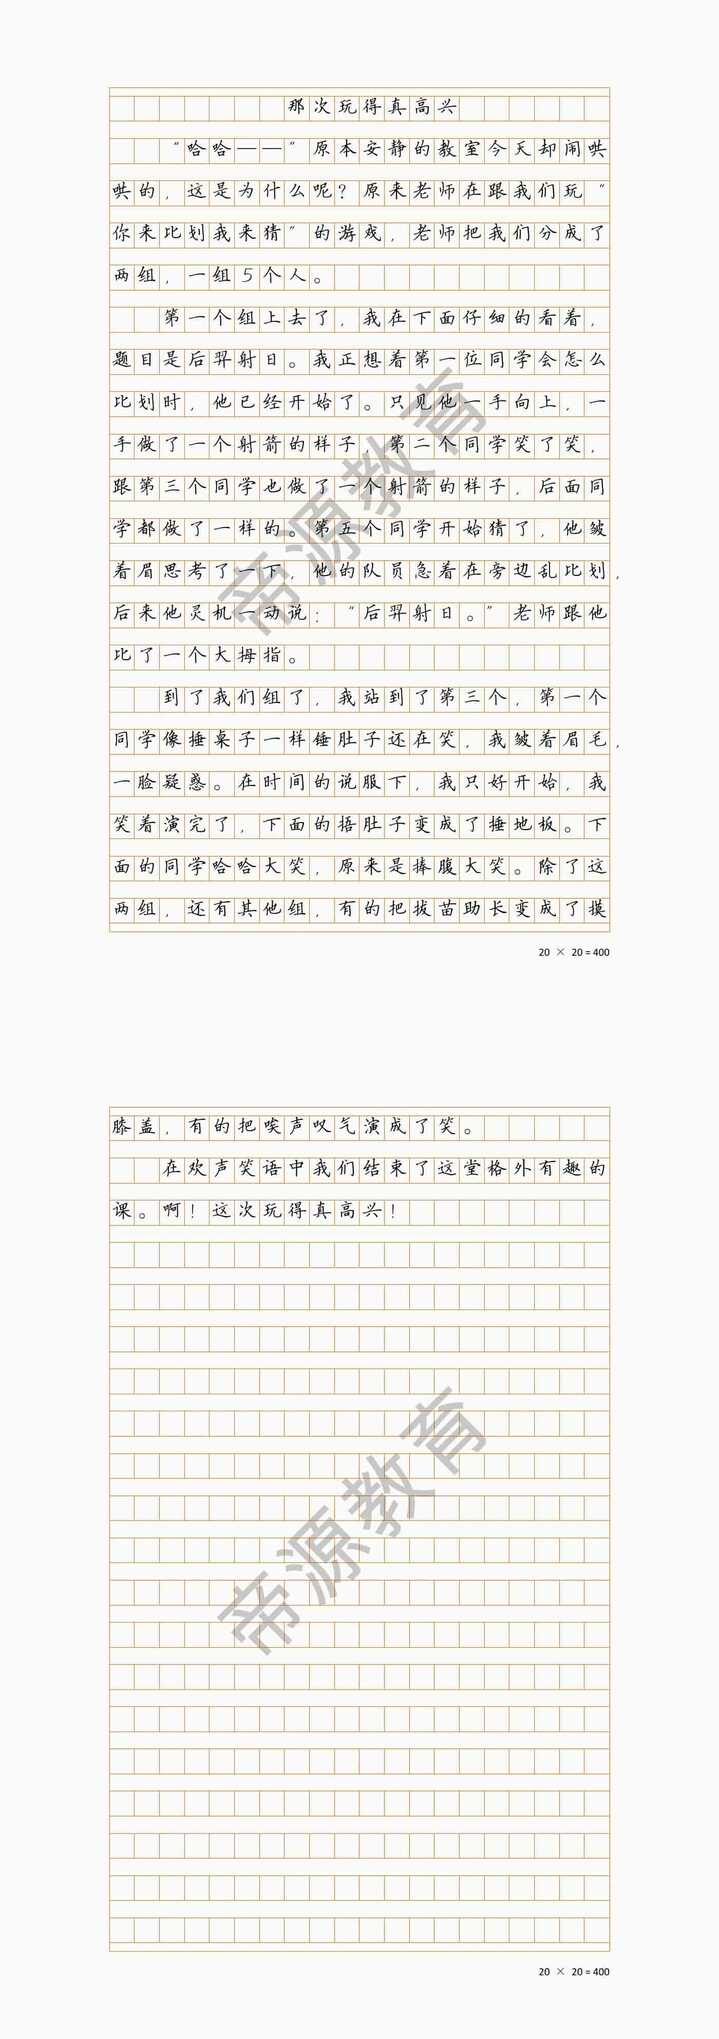 那次玩得真高兴
“哈哈——”原本安静的教室今天却闹哄
哄的，这是为什么呢？原来老师在跟我们玩“
你来比划我来猜”的游戏，老师把我们分成了
两组，一组5个人。
第一个组上去了，我在下面仔细的看着，
题目是后羿射日。我正想着第一位同学会怎么
比划时，他已经开始了。只见他一手向上，一
手做了一个射箭的样子，第二个同学笑了笑，
跟第三个同学也做了一个射箭的样子，后面同
学都做了一样的。第五个同学开始猜了，他皱
着眉思考了一下，他的队员急着在旁边乱比划，
后来他灵机一动说：“后羿射日。”老师跟他
比了一个大拇指。
到了我们组了，我站到了第三个，第一个
同学像捶桌子一样锤肚子还在笑，我皱着眉毛，
一脸疑惑。在时间的说服下，我只好开始，我
笑着演完了，下面的捂肚子变成了捶地板。下
面的同学哈哈大笑，原来是捧腹大笑。除了这
两组，还有其他组，有的把拔苗助长变成了摸
20 × 20 = 400
膝盖，有的把唉声叹气演成了笑。
在欢声笑语中我们结束了这堂格外有趣的
课。啊！这次玩得真高兴！
20 × 20 = 400
帝源教育
帝源教育